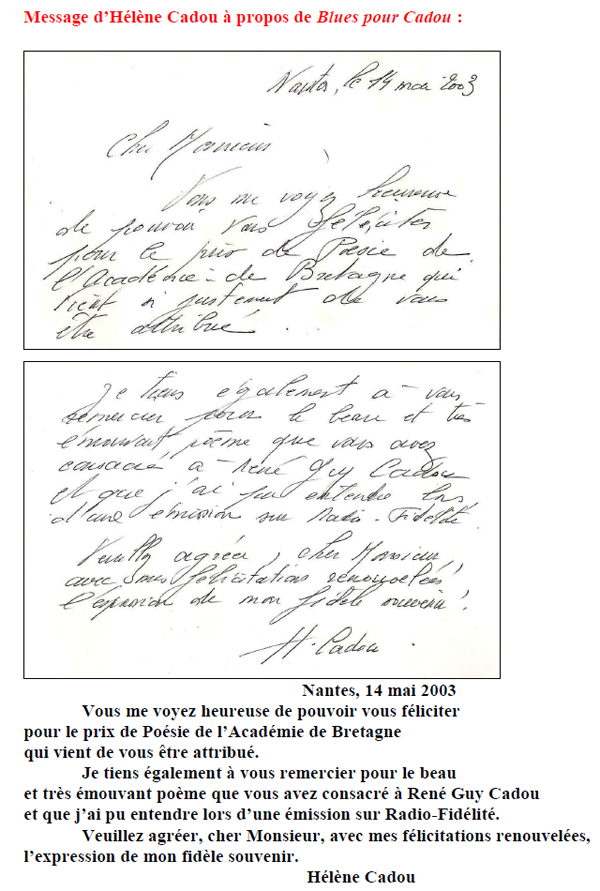 Message d’Hélène Cadou à propos de Blues pour Cadou :
Nantes, le 14 mai 2003
Cher Monsieur
Vous me voyez heureuse
de pouvoir vous féliciter
pour le prix de Poésie de
l'Académie de Bretagne qui
vient si justement de vous
être attribué.
Je tiens également à vous
remercier pour le beau et très
émouvant poème que vous avez
consacré à René Guy Cadou
et que j'ai pu entendre lors
d'une émission sur Radio-Fidélité.
Veuillez agréer, cher Monsieur,
avec mes félicitations renouvelées,
l'expression de mon fidèle souvenir.
H. Cadou.
Nantes, 14 mai 2003
Vous me voyez heureuse de pouvoir vous féliciter
pour le prix de Poésie de l’Académie de Bretagne
qui vient de vous être attribué.
Je tiens également à vous remercier pour le beau
et très émouvant poème que vous avez consacré à René Guy Cadou
et que j’ai pu entendre lors d’une émission sur Radio-Fidélité.
Veuillez agréer, cher Monsieur, avec mes félicitations renouvelées,
l’expression de mon fidèle souvenir.
Hélène Cadou